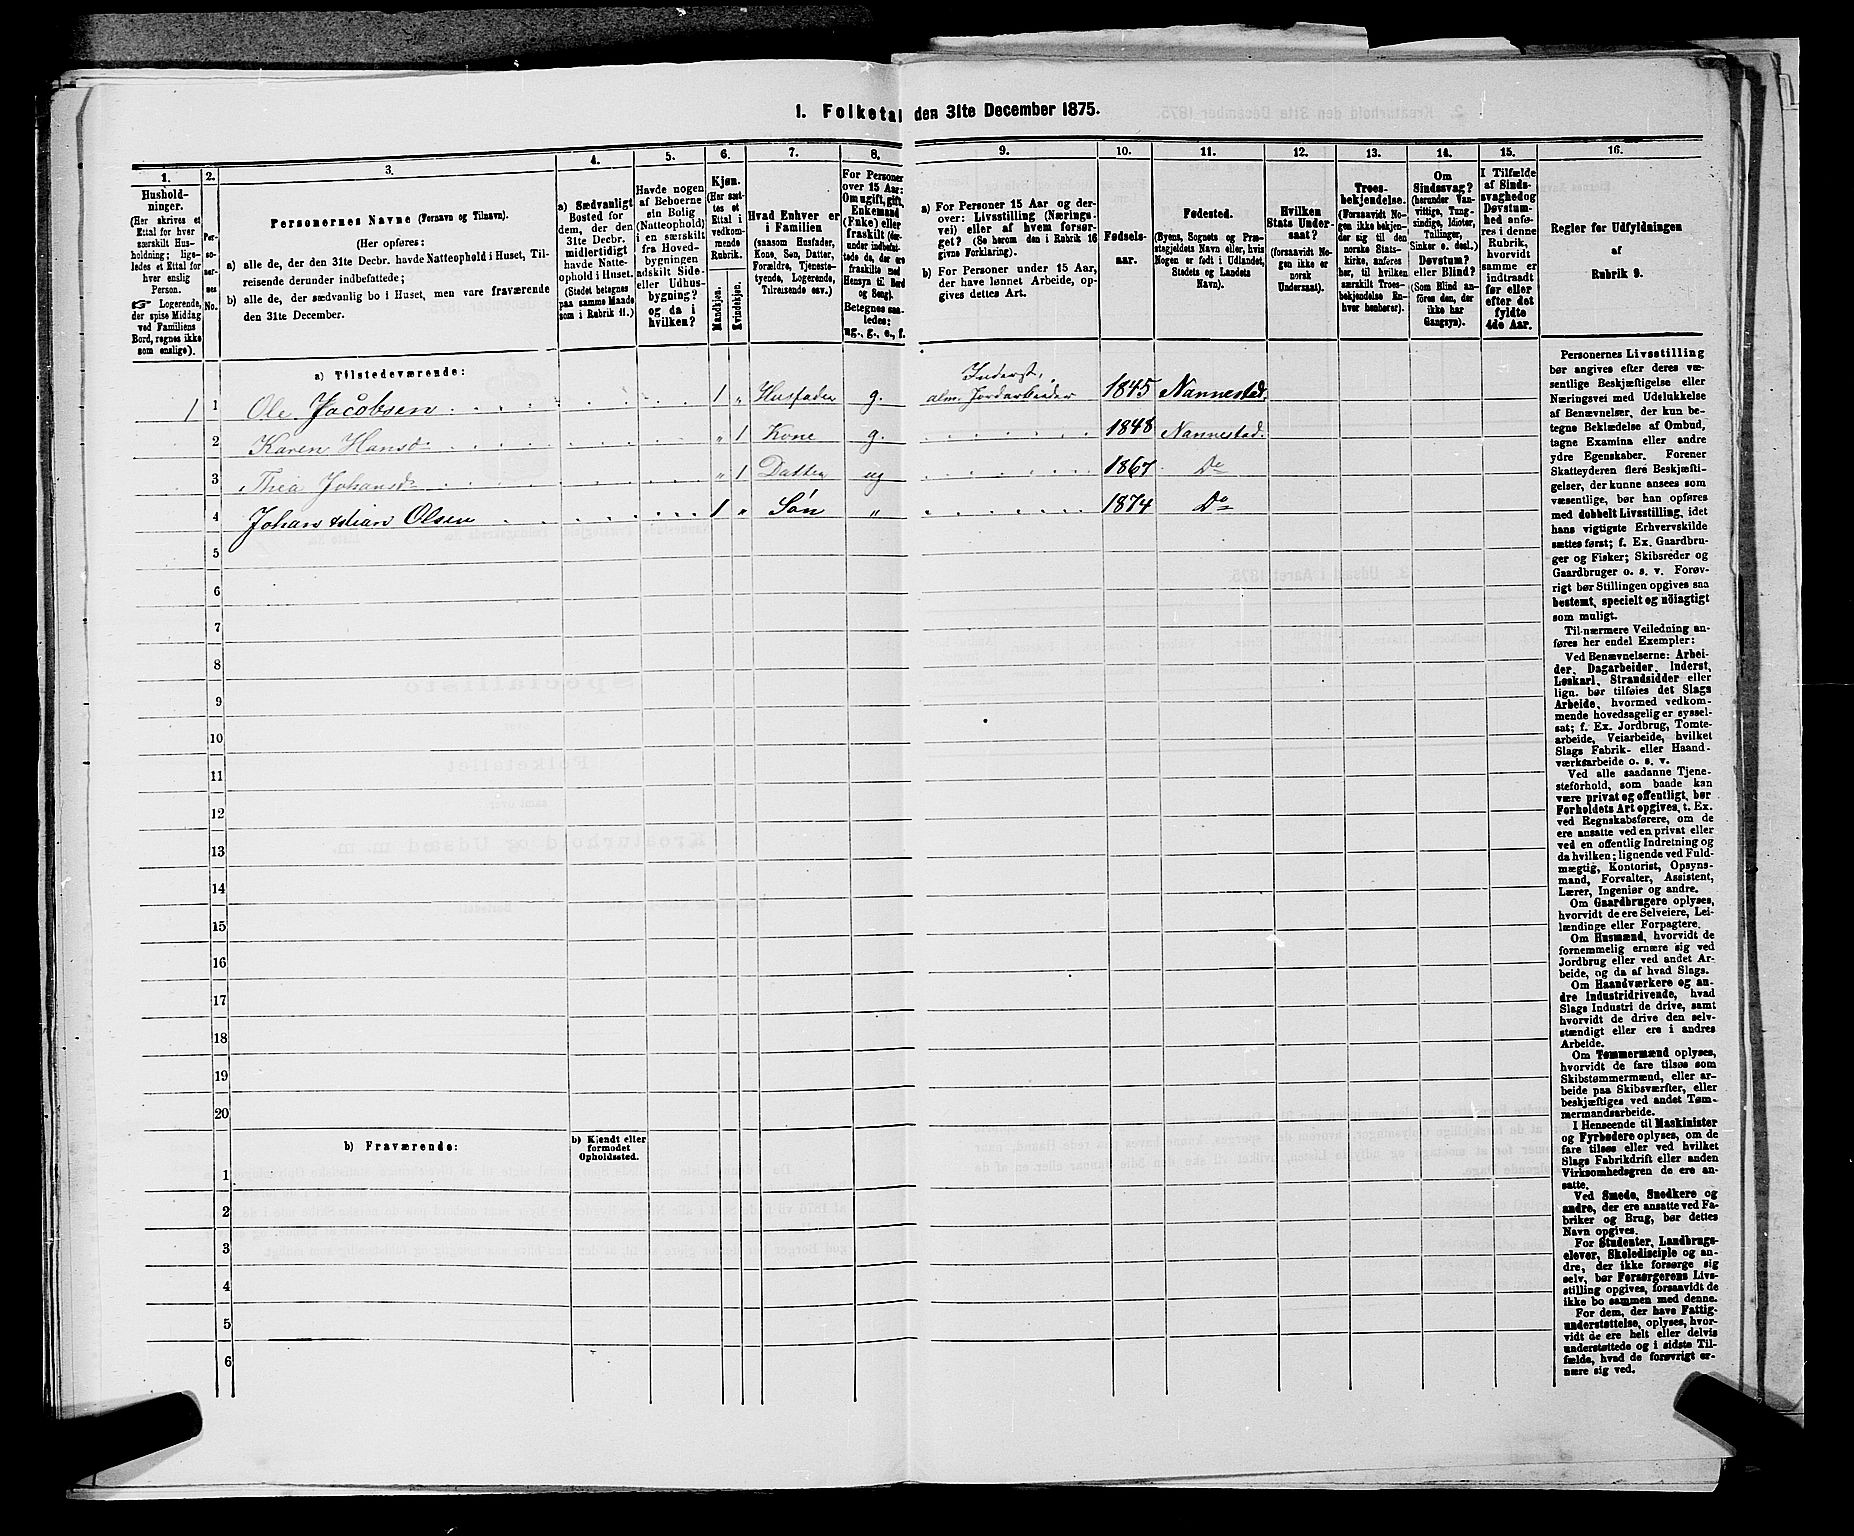 1. Folketal den 31te December 1875.
1. 2. 3. 4. 5. 6. 7. 8. 9. 10. 11. 12. 13. 14. 15. 16.
Hushold-
ninger.
(Her skrives et
Ettal for hver
særskilt Hus-
holdning; lige-
ledes et Ettal for
hver enslig
Person.
☞ Logerende,
der spise Middag
ved Familiens
Bord, regnes ikke
som enslige).
Per-
so-
ner-
nes
No.
Personernes Navne (Fornavn og Tilnavn).
(Her opføres:
a) alle de, der den 31te Decbr. havde Natteophold i Huset, Til-
reisende derunder indbefattede;
b) alle de, der sædvanlig bo i Huset, men vare fraværende
den 31te December.
a) Sædvanligt
Bosted for
dem, der den
31te Decbr.
midlertidigt
havde Natte-
ophold i Huset.
(Stedet betegnes
paa samme Maade
som i Rubrik 11.)
Havde nogen
af Beboerne
sin Bolig
(Natteophold)
i en særskilt
fra Hoved-
bygningen
adskilt Side-
eller Udhus-
bygning?
og da i
hvilken?
Kjøn.
(Her sæt-
tes et
Ettal i
vedkom-
mende
Rubrik.
Mandkjøn.
Kvindekjøn.
Hvad Enhver er
i Familien
(saasom Husfader,
Kone, Søn, Datter,
Forældre, Tjeneste-
tyende, Logerende,
Tilreisende osv.)
For Personer
over 15 Aar:
Om ugift, gift,
Enkemand
(Enke) eller
fraskilt (der-
under indbefat-
tede de, der ere
fraskilte med
Hensyn til Bord
og Seng).
Betegnes saa-
ledes:
ug., g., e., f.
a) For Personer 15 Aar og der-
over: Livsstilling (Nærings-
vei) eller af hvem forsør-
get? (Se herom den i Rubrik 16
givne Forklaring).
b) For Personer under 15 Aar,
der have lønnet Arbeide, op-
gives dettes Art.
Fødsels-
aar.
Fødested.
(Byens, Sognets og Præ-
stegjeldets Navn eller, hvis
Nogen er født i Udlandet,
Stedets og Landets
Navn).
Hvilken
Stats Under-
saat?
(forsaavidt No-
gen ikke er
norsk
Undersaat).
Troes-
bekjendelse.
(Forsaavidt No-
gen ikke bekjen-
der sig til den
norske Stats-
kirke, anføres
her, til hvilken
særskilt Troes-
bekjendelse En-
hver henhører).
Om
Sindssvag?
(herunder Van-
vittige, Tung-
sindige, Idioter,
Tullinger,
Sinker o. desl.)
Døvstum?
eller Blind?
(Som Blind an-
føres den, der
ikke har
Gangsyn).
I Tilfælde
af Sinds-
svaghed og
Døvstum-
hed anfø-
res i denne
Rubrik,
hvorvidt
samme er
indtraadt
før eller
efter det
fyldte
4de Aar.
Regler for Udfyldningen
af
Rubrik 9.
a) Tilstedeværende:
Inderst,
1 1 Ole Jacobsen 1 „ Husfader g. alm. Jordarbeider 1845 Nannestad.
2 Karen Hansd „ 1 Kone g. 1848 Nannestad.
3 Thea Johansd „ 1 Datter ug 1867 Do
4 Johan Olsen 1 „ Søn „ 1874 Do
5
6
7
8
9
10
11
12
13
14
15
16
17
18
19
20
b) Fraværende:
b) Kjendt eller
formodet
Opholdssted.
1
2
3
4
5
6
Personernes Livsstilling
bør angives efter deres væ-
sentlige Beskjæftigelse eller
Næringsvei med Udelukkelse
af Benævnelser, der kun be-
tegne Beklædelse af Ombud,
tagne Examina eller andre
ydre Egenskaber. Forener
Skatteyderen flere Beskjæfti-
gelser, der kunne ansees som
væsentlige, bør han opføres
med dobbelt Livsstilling, idet
hans vigtigste Erhvervskilde
sættes først; f. Ex. Gaardbru-
ger og Fisker; Skibsreder og
Gaardbruger o. s. v. Forøv-
rigt bør Stillingen opgives saa
bestemt, specielt og nöiagtigt
som muligt.
Til nærmere Veiledning an-
føres her endel Exempler:
Ved Benævnelserne: Arbei-
der, Dagarbeider, Inderst,
Løskarl, Strandsidder eller
lign. bør tilføies det Slags
Arbeide, hvormed vedkom-
mende hovedsagelig er syssel-
sat; f. Ex. Jordbrug, Tomte-
arbeide, Veiarbeide, hvilket
Slags Fabrik- eller Haand-
værksarbeide o. s. v.
Ved alle saadanne Tjene-
steforhold, som baade kan
være privat og offentligt, bør
Forholdets Art opgives, t. Ex.
ved Regnskabsførere, om de
ere ansatte ved en privat eller
ved en offentlig Indretning og
da hvilken; lignende ved Fuld-
mægtig, Kontorist, Opsyns-
mand, Forvalter, Assistent,
Lærer, Ingeniør og andre.
Om Gaardbrugere oplyses,
hvorvidt de ere Selveiere, Lei-
lændinge eller Forpagtere.
Om Husmænd, hvorvidt de
fornemmelig ernære sig ved
Jordbrug eller ved andet Ar-
beide, og da af hvad Slags.
Om Haandværkere og an-
dre Industridrivende, hvad
Slags Industri de drive, samt
hvorvidt de drive den selv-
stændigt eller ere i andres
Arbeide.
Om Tømmermænd oplyses,
hvorvidt de fare tilsøs som
Skibstømmermænd, eller ar-
beide paa Skibsværfter, eller
beskjæftiges ved andet Tøm-
mermandsarbeide.
I Henseende til Maskinister
og Fyrbødere oplyses, om de
fare tilsøs eller ved hvilket
Slags Fabrikdrift eller anden
Virksomhedsgren de ere an-
satte.
Ved Smede, Snedkere og
andre, der ere ansatte ved Fa-
briker og Brug, bør dettes
Navn opgives.
For Studenter, Landbrugs-
elever, Skoledisciple og an-
dre, der ikke forsørge sig
selv, bør Forsørgerens Livs-
stilling opgives, forsaavidt de
ikke bo sammen med denne.
For dem, der have Fattig-
understøttelse, oplyses, hvor-
vidt de ere helt eller delvis
understøttede og i sidste Til-
fælde, hvad de forøvrigt er-
nære sig ved.